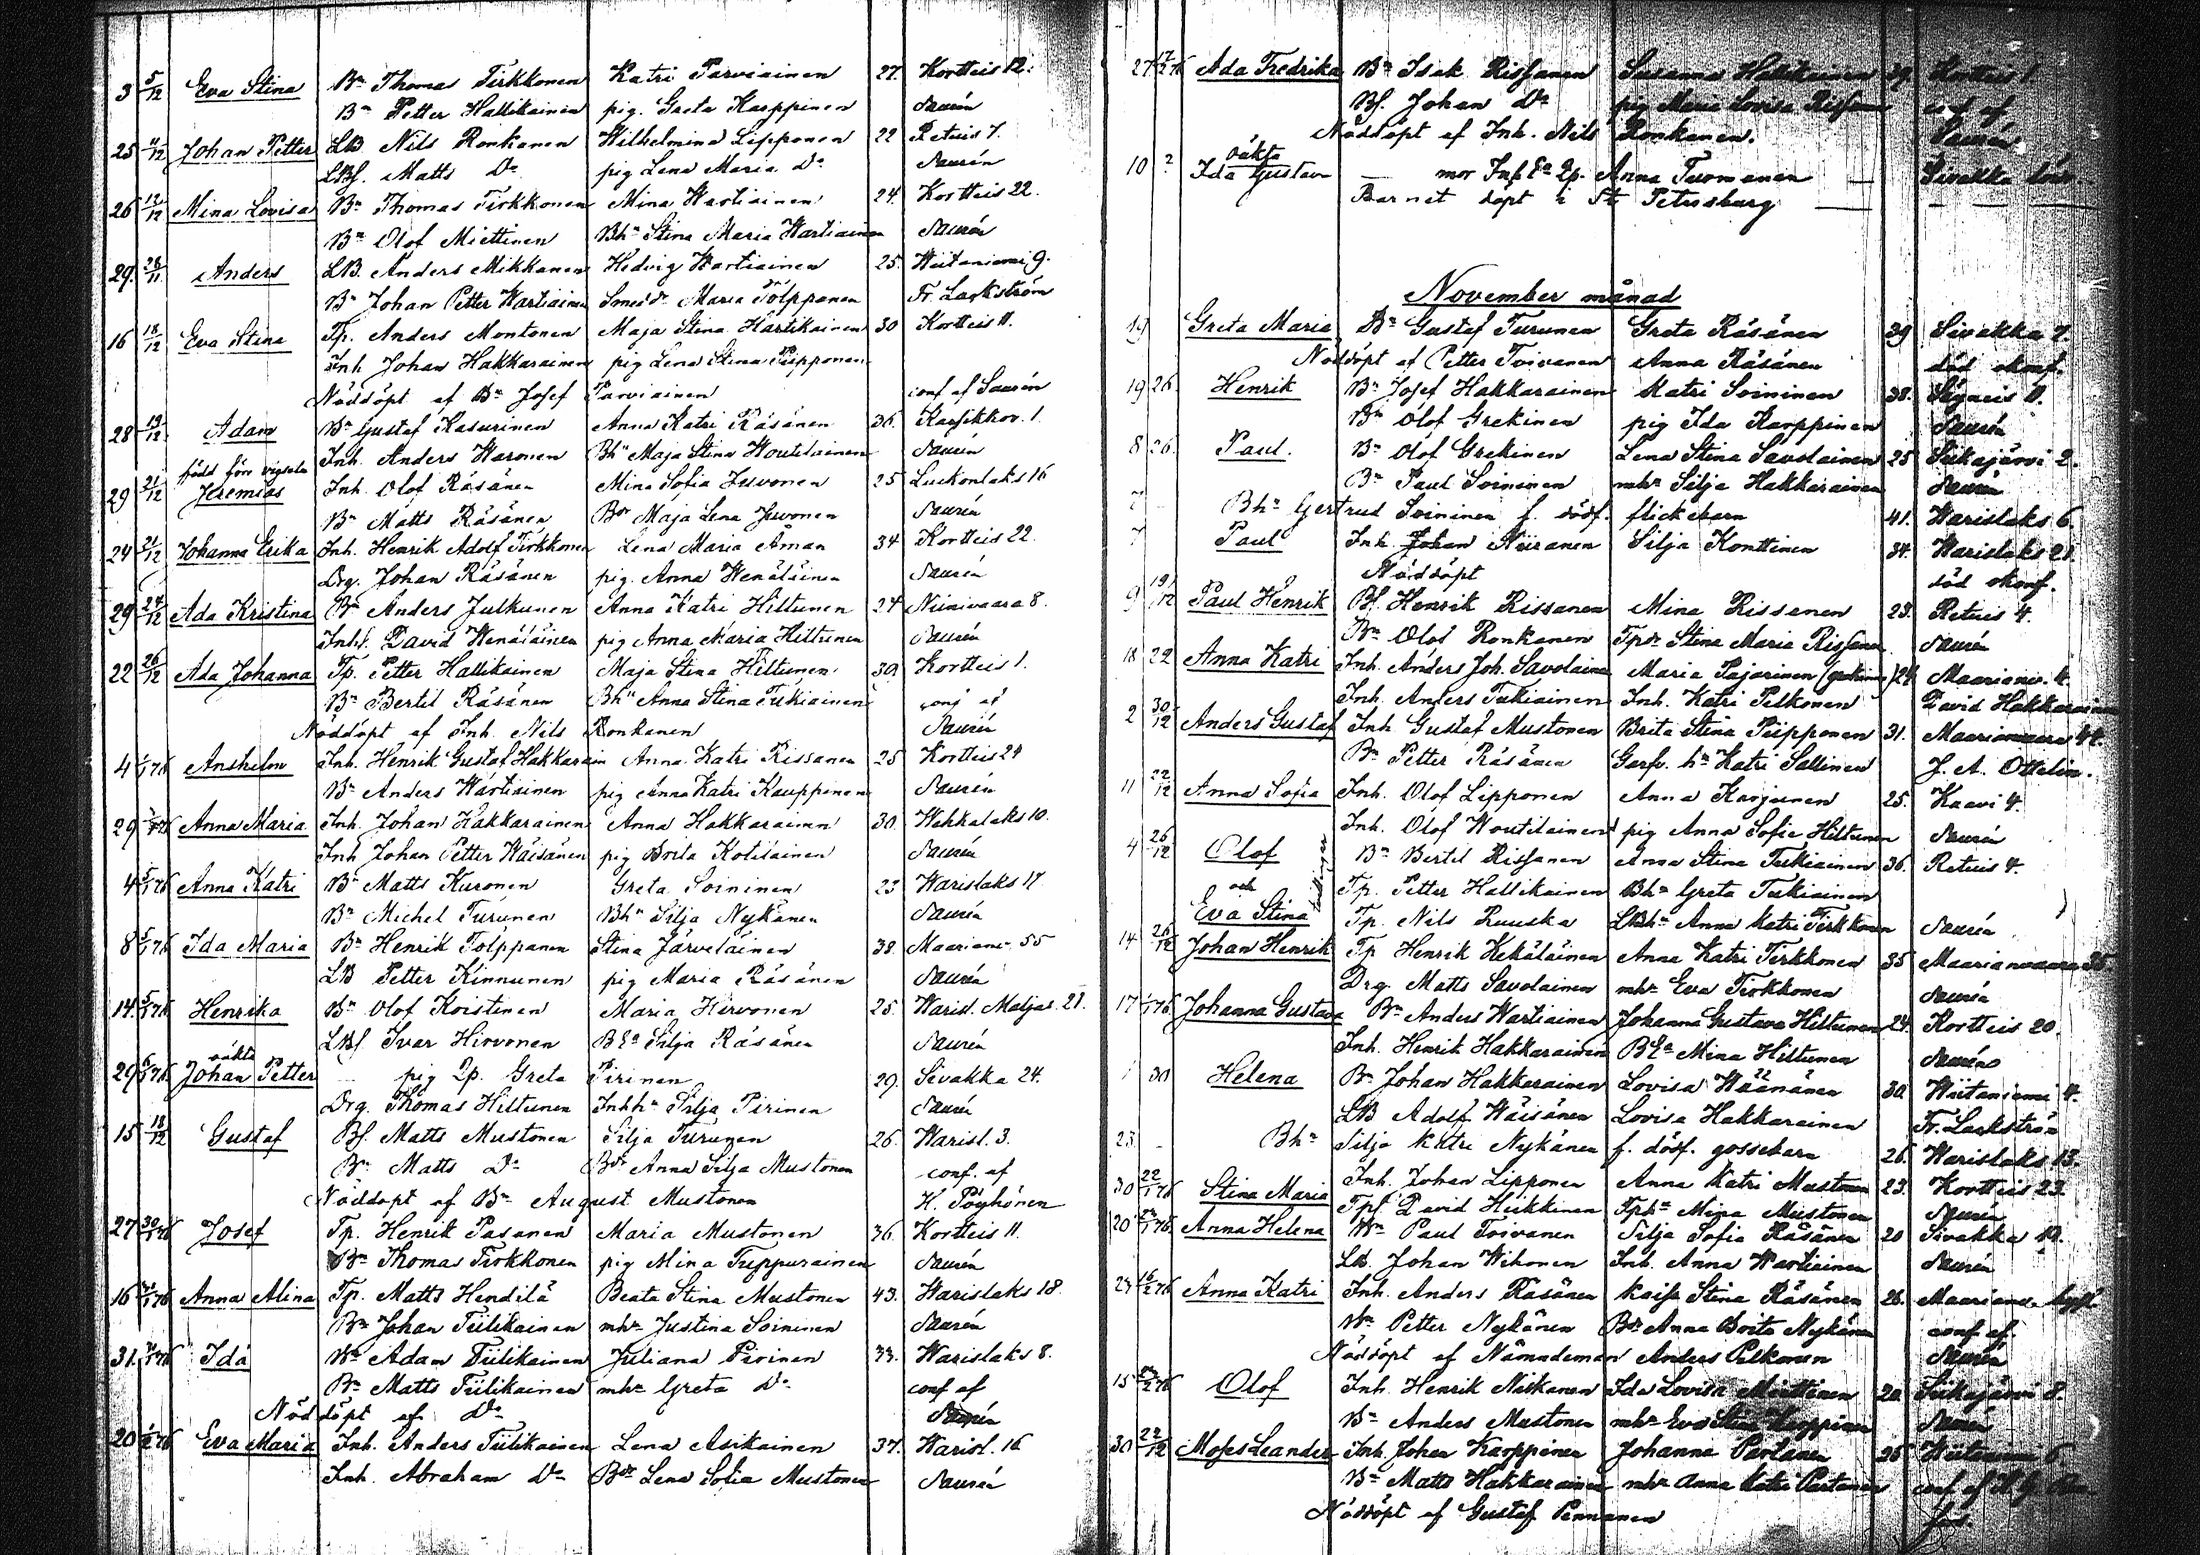 3 5/12 Eva Stina Bn Thomas Tirkkonen Katri Parviainen 27. Kortteis 12.
Bn Petter Hallikainen pig. Greta Karppinen Saurén
25 11/12 Johan Petter LB Nils Ronkanen Wilhelmina Lipponen 22 Retuis 7.
LBf. Matts Do pig Lena Maria Do Saurén
26 12/12 Mina Lovisa Bn Thomas Tirkkonen Mina Wartiainen 24. Kortteis 22.
Bn Olof Miettinen Bhu Stina Maria Wartiainen Saurén
29. 28/11 Anders LB. Anders Mikkanen Hedvig Wartiainen 25. Wiitaniemi 9.
Bn Johan Petter Wartiainen Smedd. Maria Tolppanen Fr. Lackström
16 18/12 Eva Stina Tp. Anders Montonen Maja Stina Hartikainen 30 Kortteis 11.
Inh Johan Hakkarainen pig Lena Stina Piipponen
Nöddöpt af Bn Josef Parviainen conf af Saurén
28 19/12 Adam Bn Gustaf Kasurinen Anna Katri Räsänen 36. 1.
född före vigseln Inh. Anders Waronen Bhu Maja Stina Woutilainen Saurén
29 21/12 Jeremias Inh. Olof Räsänen Mina Sofia Juvonen 25 Luikonlaks 16
Bn Matts Räsänen Bdr Maja Lena Juvonen Saurén
24 21/12 Johanna Erika Inh. Henrik Adolf Tirkkonen Lena Maria Åman 34 Kortteis 22.
Drg. Johan Räsänen pig. Anna Wenäläinen Saurén
29 24/12 Ada Kristina Bn Anders Julkunen Anna Katri Hiltunen 24 Niinivaara 8.
Inhf. David Wenäläinen pig Anna Maria Hiltunen Saurén
22 26/12 Ada Johanna Tp. Petter Hallikainen Maja Stina Hiltunen 30. Kortteis 1.
Bn Bertil Räsänen Bhu Anna Stina Tukiainen conf af
Nöddöpt af Inh. Nils Ronkanen Saurén
4 Anshelm Inh. Henrik Gustaf Hakkarain Anna Katri Rissanen 25 Kortteis 24
Bn Anders Wartiainen pig Anna Katri Kauppinen Saurén
29 Anna Maria Inh. Johan Hakkarainen Anna Hakkarainen 30. Wehkalaks 10.
Inh Johan Petter Wäisänen pig Brita Kotilainen Saurén
4 5/1 76 Anna Katri Bn Matts Kuronen Greta Soininen 23 Warislaks 17
Bn Michel Turunen Bhu Silja Nykänen Saurén
8 5/1 76 Ida Maria Bn Henrik Tolppanen Stina Järveläinen 38. Maarianv. 55
LB Petter Kinnunen pig Maria Räsänen Saurén
14. 5/1 76 Henrika Bn Olof Koistinen Maria Hirvonen 25. Warisl. Matjas. 21.
LBf Ivar Hirvonen BEa Silja Räsänen Saurén
29 6/1 76 oäkta Johan Petter — pig Qp. Greta Pirinen 29. Sivakka 24.
Drg. Thomas Hiltunen Inhhu Silja Pirinen Saurén
15 18/12 Gustaf Bf. Matts Mustonen Silja Turunen 26. Warisl. 3.
Bn Matts Do Bdr Anna Silja Mustonen conf. af
Nöddöpt af Bn August Mustonen H. Pöyhönen
27 Josef Tp. Henrik Pasanen Maria Mustonen 36. Kortteis 11.
Bn Thomas Tirkkonen pig Mina Tuppurainen Saurén
16 Anna Alina Tp. Matts Hendilä Beata Stina Mustonen 43. Warislaks 18.
Bn Johan Tiilikainen mhr Justina Soininen Saurén
31. Ida Bn Adam Tiilikainen Juliana Pirinen 33. Warislaks 8.
Bn Matts Tiilikainen mhr Greta Do conf af
Nöddöpt af Do Saurén
20 Eva Maria Inh. Anders Tiilikainen Lena Asikainen 37. Warisl. 16
Inh. Abraham Do Bdr Lena Sofia Mustonen Saurén
27 17/2 76 Ada Fredrika Bn Isak Rissanen Susanna Hakkarainen 39. Kortteis 1.
Bf. Johan Do pig Maria Lovisa Rissanen conf af
Nöddöpt af Inh. Nils Ronkanen. Saurén
10 ? oäkta Ida Gustava — mor Inh Ea Qp. Anna Tuomanen — Sivakka lösa
Barnet döpt i St. Petersburg
November månad
19 Greta Maria Bn Gustaf Turunen Greta Räsänen 39 Sivakka 7.
Nöddöpt af Petter Toivanen Anna Räsänen död okonf.
19 26. Henrik Bn Josef Hakkarainen Katri Soininen 38. Sägneis 11.
Bn Olof Grekinen pig Ida Karppinen Saurén
8 26. Paul. Bn Olof Grekinen Lena Stina Savolainen 25 Siikajärvi 2.
Bn Paul Soininen mhr Silja Hakkarainen Saurén
7 Bhu Gertrud Soininen f. dödf. flickebarn 41. Warislaks 6.
7 Paul Inh. Johan Niiranen Silja Konttinen 34. Warislaks 21.
Nöddöpt död okonf.
9 19/12 Paul Henrik Bf. Henrik Rissanen Mina Rissanen 23. Retuis 4.
Bn Olof Ronkanen Tpdr Stina Maria Rissanen Saurén
18 22 Anna Katri Inh. Anders Joh. Savolainen Maria Pajarinen 24 Maarianv. 4.
Inh. Anders Tukiainen Inh. Katri Pelkonen David Hakkarainen
2 30/12 Anders Gustaf Inh Gustaf Mustonen Brita Stina Piipponen 31. Maarianvaara 44.
Bn Petter Räsänen Garfv. hu Katri Sallinen J. A. Ottelin.
11 22/12 Anna Sofia Inh. Olof Lipponen Anna Karjunen 25. Kaavi 4.
Inh. Olof Woutilainen pig Anna Sofia Hiltunen Saurén
4 26/12 Olof Bn Bertil Rissanen Anna Stina Tukiainen 36. Retuis 4.
och tvillingar Tp. Petter Hallikainen Bhu Greta Tukiainen
Eva Stina Tp. Nils Ruuska LBhu Anna Katri Tirkkonen Saurén
14 26/12 Johan Henrik Tp Henrik Kekäläinen Anna Katri Tirkkonen 35 Maarianvaara 35.
Drg. Matts Savolainen mhr Eva Tirkkonen Saurén
17 Johanna Gustava Bn Anders Wartiainen Johanna Gustava Hiltunen 24. Kortteis 20.
Inh. Henrik Hakkarainen BEa Mina Hiltunen Saurén
1 30 Helena Bn Johan Hakkarainen Lovisa Wäänänen 30. Wiitaniemi 4.
LB Adolf Wäisänen Lovisa Hakkarainen Fr. Lackström
23. Bhu Silja Katri Nykänen f. dödf. gossebarn 26. Warislaks 13.
30 22/1 76 Stina Maria Inh. Johan Lipponen Anna Katri Mustonen 23. Kortteis 23.
Tpf. David Heikkinen Tphu Mina Mustonen Saurén
20 Anna Helena Bn Paul Toivanen Silja Sofia Räsänen 20 Sivakka 19.
LB. Johan Wihonen Inh. Anna Wartiainen Saurén
24 16/2 76 Anna Katri Inh. Anders Räsänen Kaisa Stina Räsänen 26. Maarianv.
Bn Petter Nykänen Bdr Anna Brita Nykänen conf. af.
Nöddöpt af Nämndeman Anders Pelkonen Saurén
15 Olof Inh. Henrik Niskanen Ida Lovisa Miettinen 20. Siikajärvi 8.
Bn Anders Mustonen mhr Eva Stina Karppinen Saurén
30 22/12 Moses Leander Inh Johan Karppinen Johanna Partanen 25 Wiitaniemi 6.
Bn Matts Hakkarainen mhr Anna Katri Partanen conf af
Nöddöpt af Gustaf Pennanen